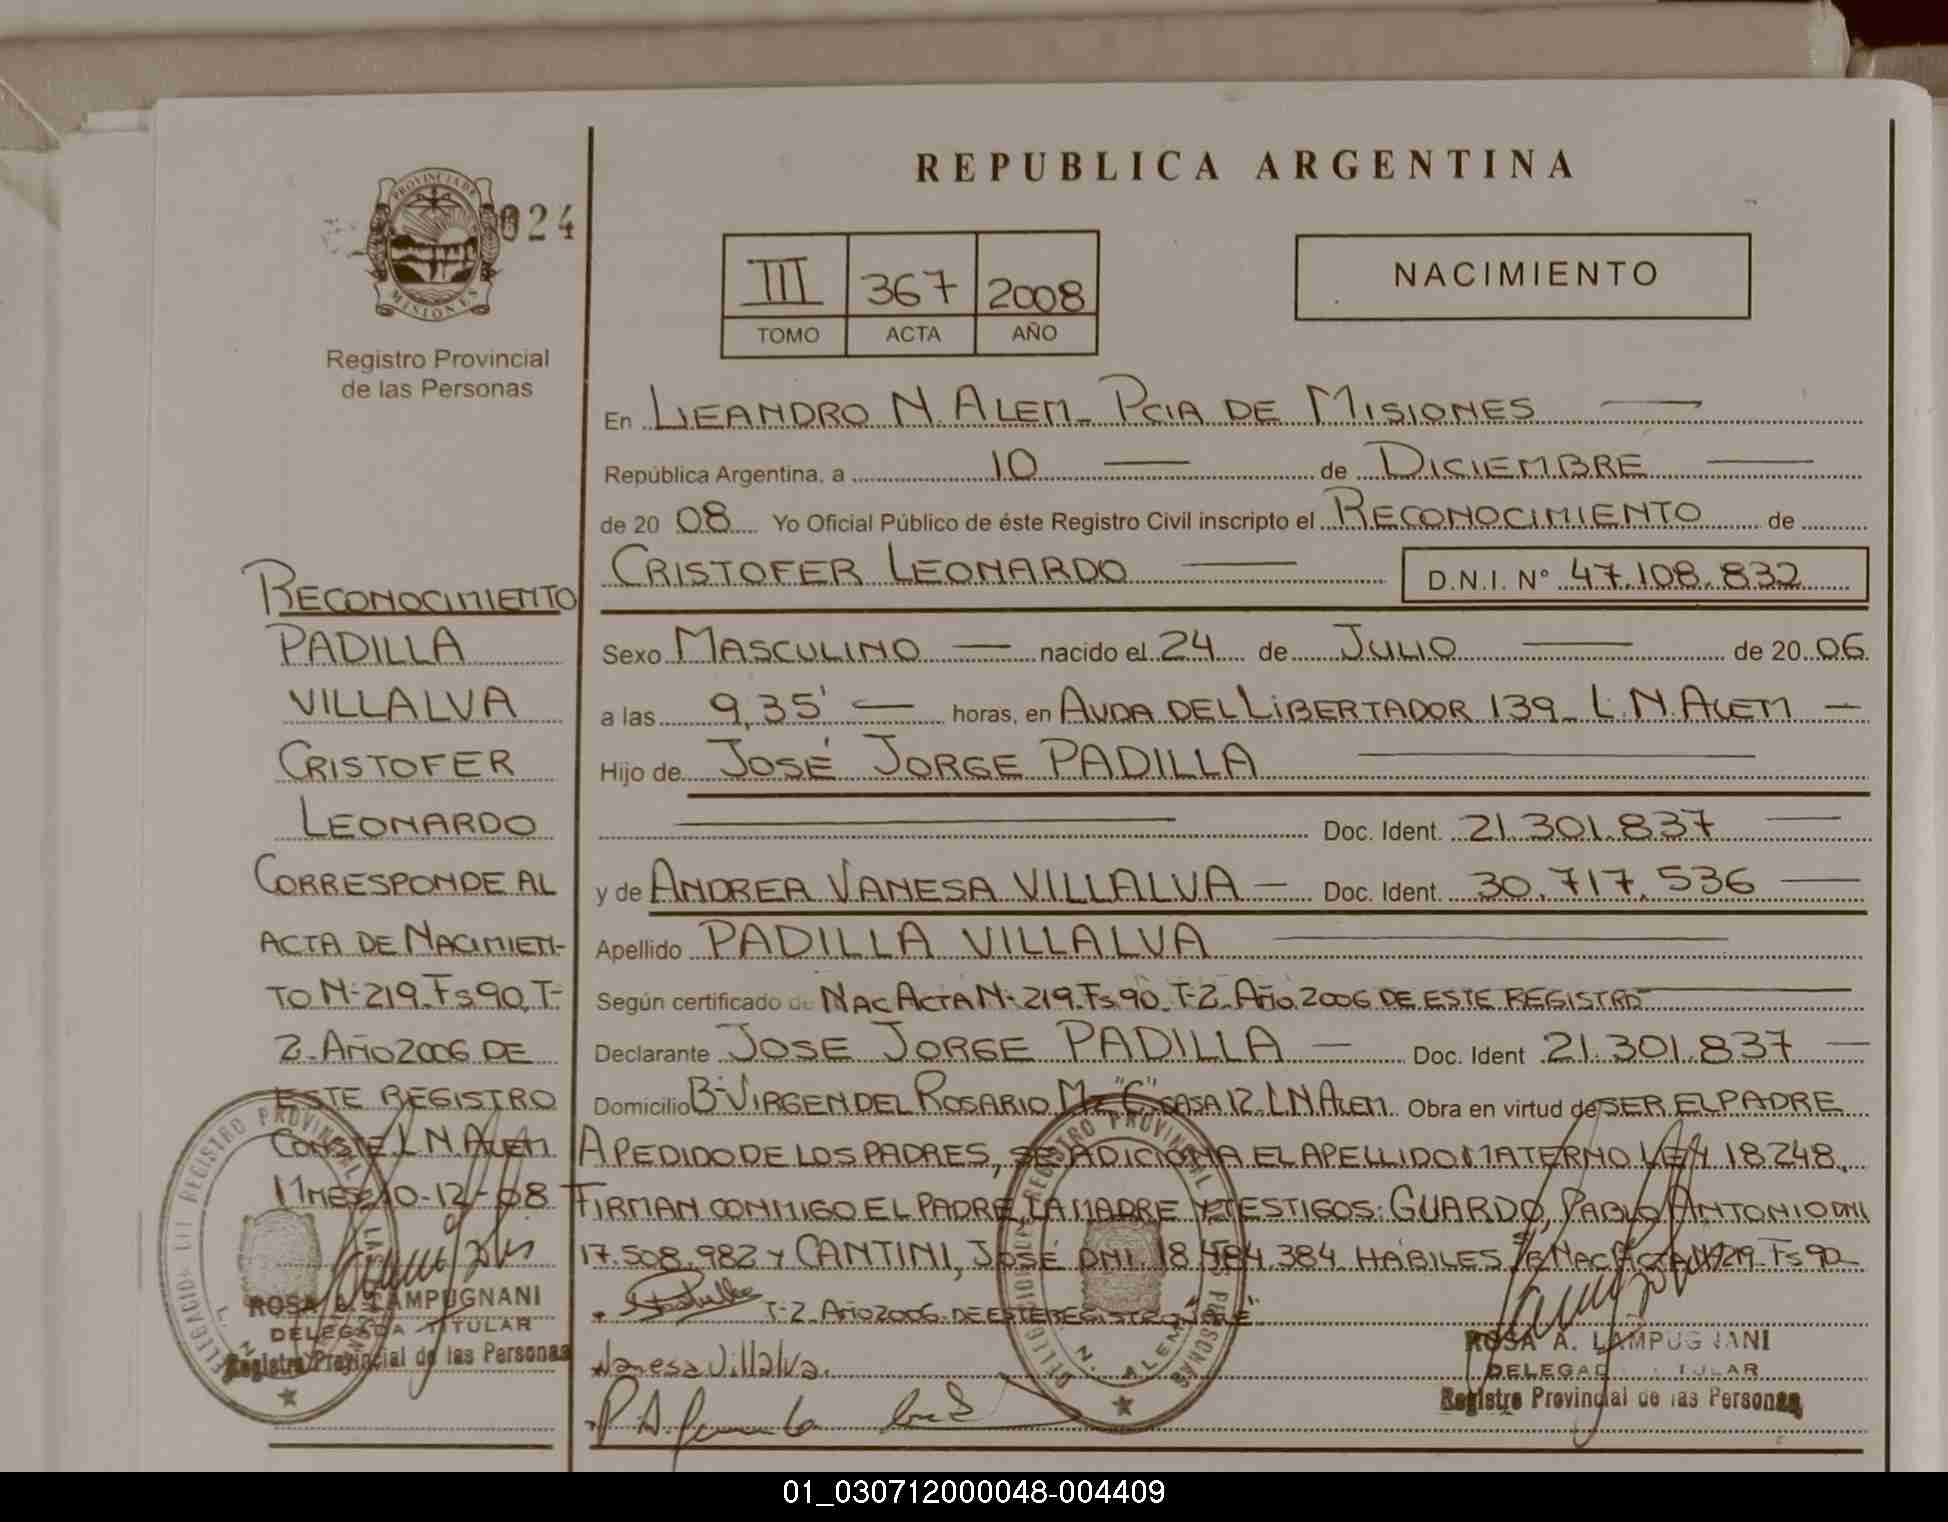 REPUBLICA ARGENTINA
PROVINCIA DE
MISIONES
024
Registro Provincial
de las Personas
III 367 2008
TOMO ACTA AÑO
NACIMIENTO
En LEANDRO N. ALEM_ PCIA DE MISIONES
República Argentina, a 10 de DICIEMBRE
de 20 08 Yo Oficial Público de éste Registro Civil inscripto el RECONOCIMIENTO de
CRISTOFER LEONARDO D.N.I. N° 47.108.832
Sexo MASCULINO nacido el 24 de JULIO de 20 06
a las 9,35' horas, en AVDA DEL LIBERTADOR 139_ L.N.ALEM
Hijo de JOSÉ JORGE PADILLA
Doc. Ident. 21.301.837
y de ANDREA VANESA VILLALVA Doc. Ident. 30.717.536
Apellido PADILLA VILLALVA
Según certificado de NAC ACTA N- 219_Fs 90_T-2_AÑO 2006 DE ESTE REGISTRO
Declarante JOSE JORGE PADILLA Doc. Ident 21.301.837
Domicilio B- VIRGEN DEL ROSARIO Mz "C" CASA 12_L.N.ALEM Obra en virtud de SER EL PADRE
A PEDIDO DE LOS PADRES, SE ADICIONA EL APELLIDO MATERNO LEY 18.248.
FIRMAN CONMIGO EL PADRE, LA MADRE Y TESTIGOS: GUARDO, PABLO ANTONIO DNI
17.508.982 Y CANTINI, JOSÉ DNI. 18.484.384 HÁBILES NAC ACTA N- 219_Fs 90_
T-2_AÑO 2006_DE ESTE REGISTRO
Vanesa Villalva.
RECONOCIMIENTO
PADILLA
VILLALVA
CRISTOFER
LEONARDO
CORRESPONDE AL
ACTA DE NACIMIEN-
TO N- 219_Fs 90_T-
2_AÑO 2006 DE
ESTE REGISTRO
CONSTE L.N.ALEM
MNES 10-12-08
ROSA A. LAMPUGNANI
DELEGADA TITULAR
Registro Provincial de las Personas
ROSA A. LAMPUGNANI
DELEGADA TITULAR
Registro Provincial de las Personas
01_030712000048-004409